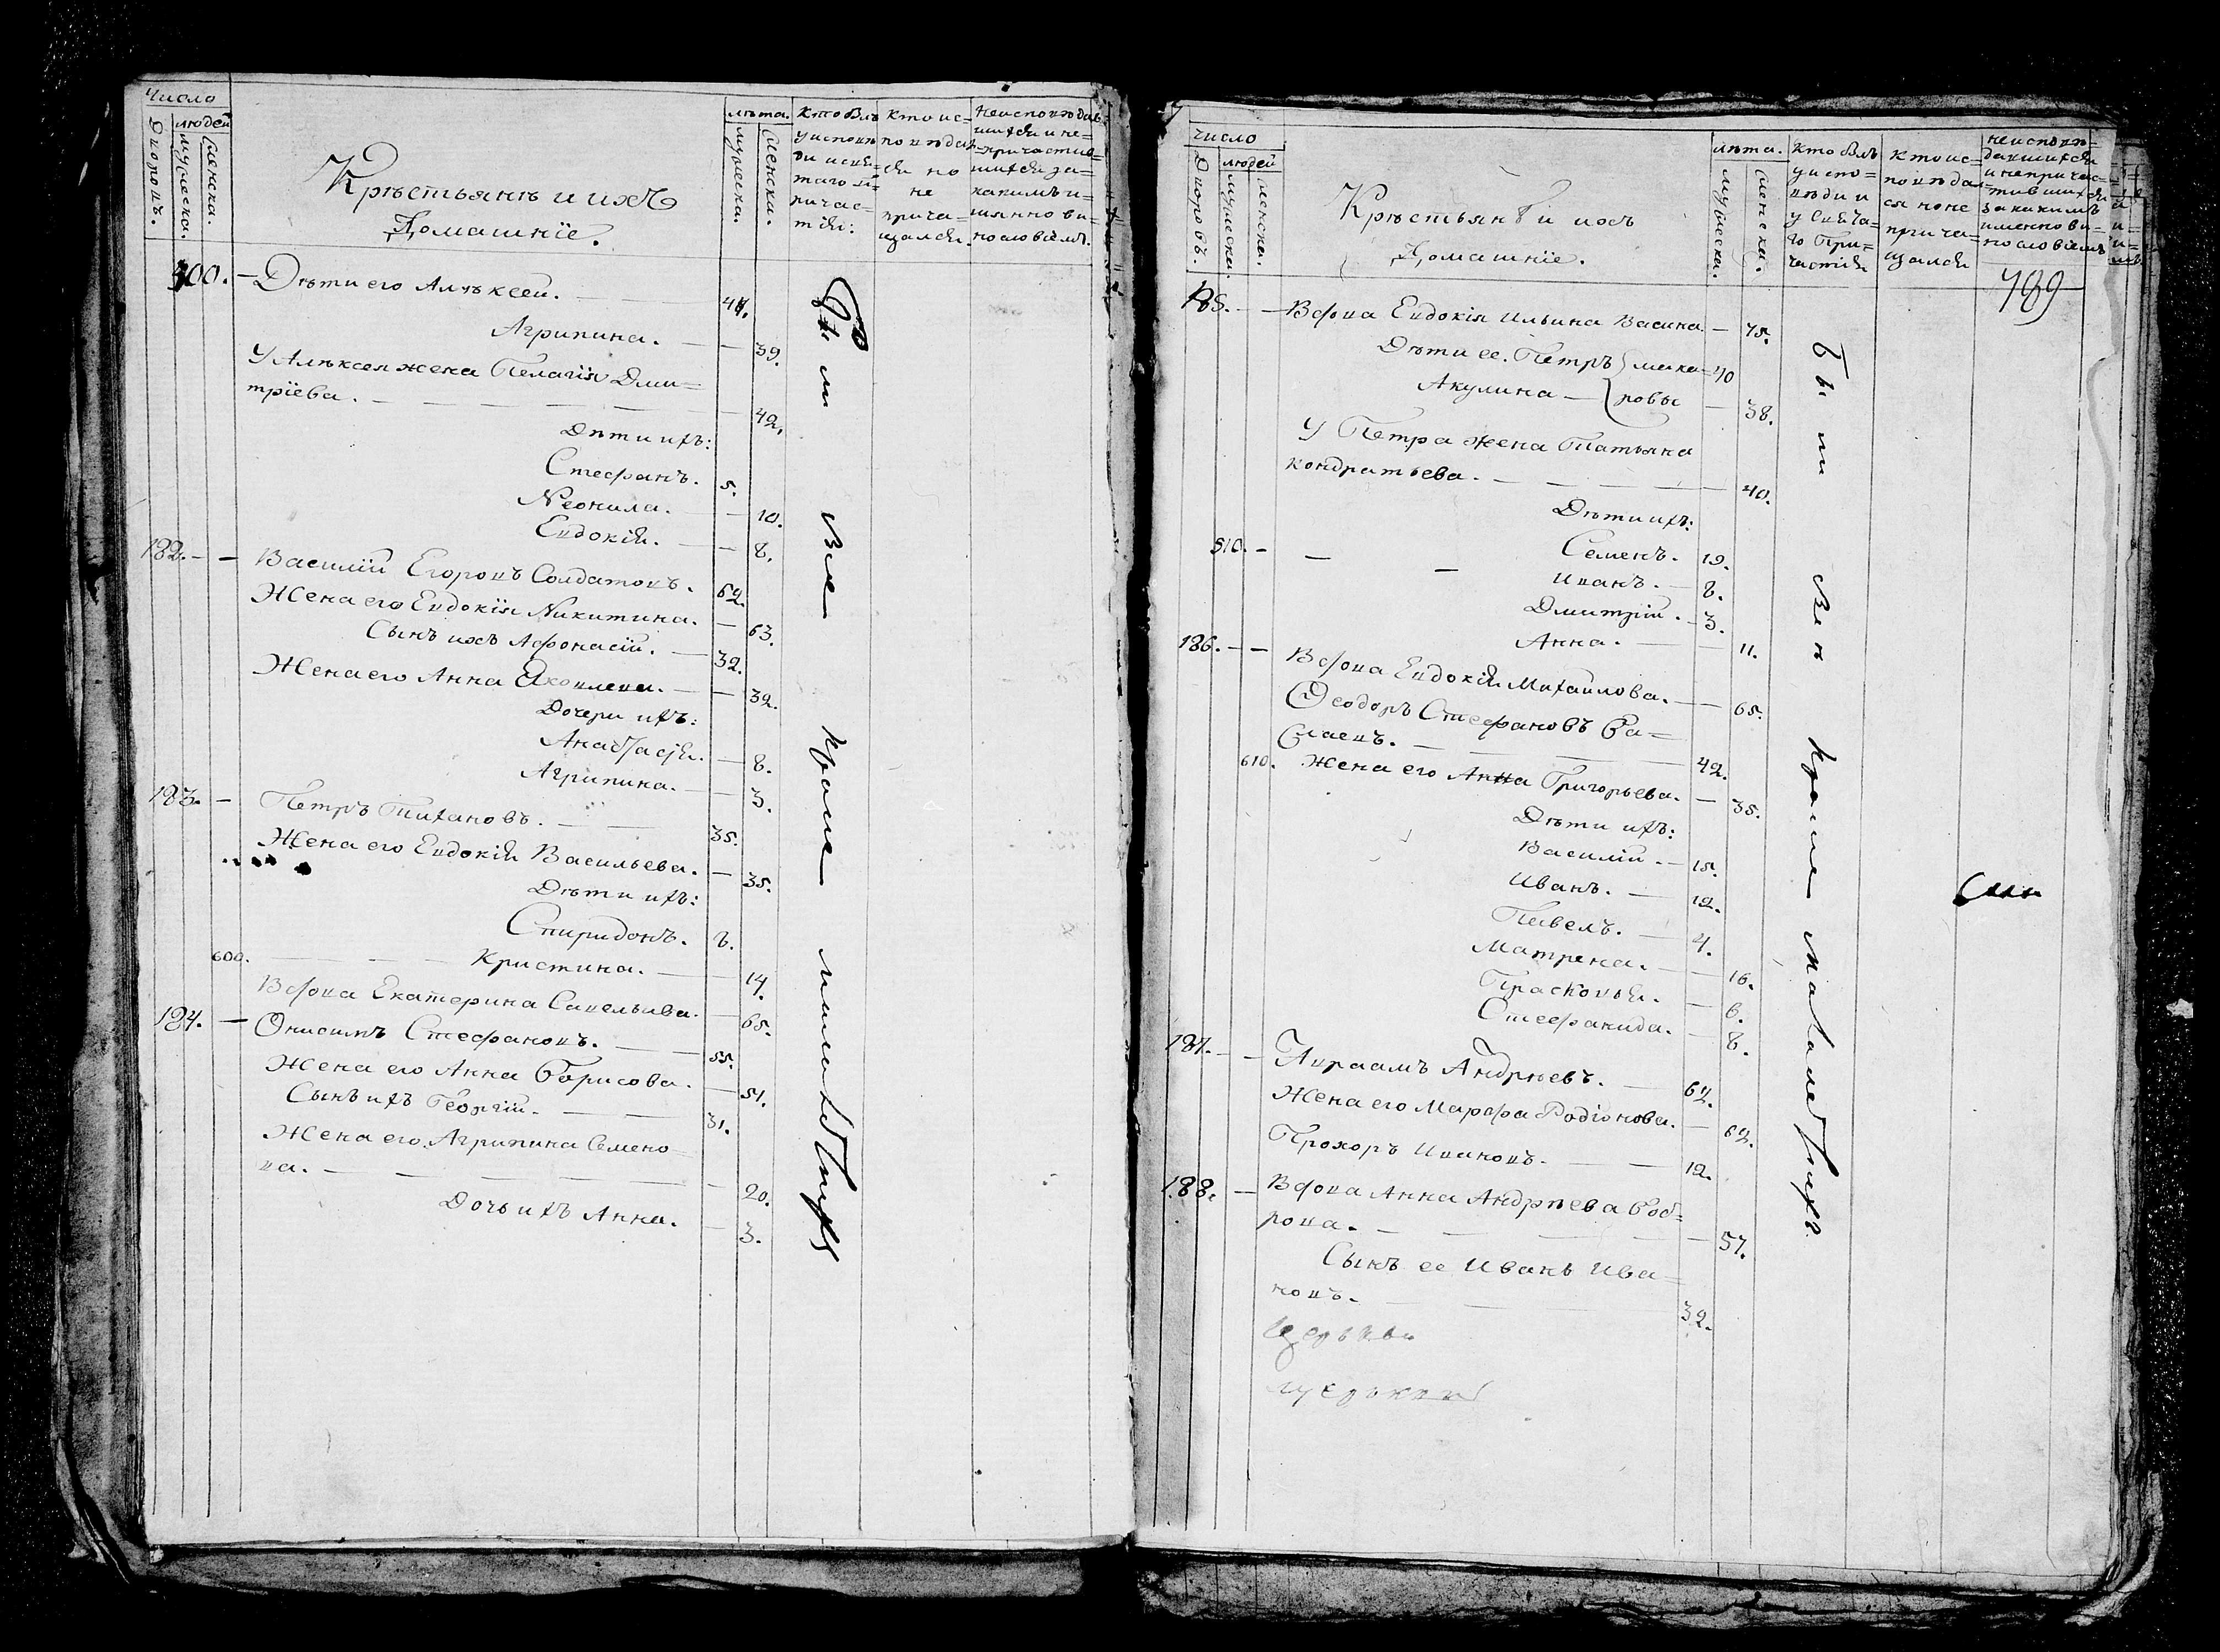 число
людей
Дворовъ.
мужеска.
женска.
Кръстьянъ и ихъ
Домашнїе.
лѣта.
мужеска.
женска.
кто былъ
у испов
ѣди и свя=
таго п
ричас=
тія:
кто ис=
повѣдал
ся но
не
прича=
щался.
неисповѣдав
шихся и не=
причастив=
шихся за
какимъ и=
мянно ви=
нословіемъ.
500. — Дѣти его Алѣксей. — 44.
Агрипина. — 39.
У Алѣксея жена Пелагія Дми=
трїева. — 42.
Дѣти ихъ:
Стефанъ. 5.
Неонила. — 10.
Евдокія. — 8.
182. — Василій Егоровъ Солдатовъ. 62.
Жена его Евдокія Никитина. — 63.
Сынъ ихъ Афонасій. — 32.
Жена его Анна Яковлева. — 32.
Дочери ихъ:
Анастасія. — 8.
Агрипина. — 3.
183. — Петръ Тихановъ. — 35.
Жена его Евдокія Васильева. — 35.
Дѣти ихъ:
Спиридонъ. 8.
600. — Кристина. — 14.
Вдова Екатерина Савельива. — 65.
184. — Онисимъ Стефановъ. — 55.
Жена его Анна Борисова. — 51.
Сынъ ихъ Георгій. — 31.
Жена его Агрипина Семено
ва. — 20.
Дочь ихъ Анна. — 3.
Были Все кроме малолѣтнихъ
число
людей
Дворовъ.
мужеска.
женска.
Кръстьянъ и ихъ
Домашнїе.
лѣта.
мужеска.
женска.
кто былъ
у испо=
вѣди и
у Свята=
го При=
частія
кто ис=
повѣдал=
ся но не
прича=
щался
неисповѣ=
давшихся
и непричас=
тившихся
за какимъ
именно ви=
нословіемъ
789
185. — Вдова Евдокія Ильина Васина — 75.
Дѣти ее. Петръ } мака= 40
Акулина — } ровы — 38.
У Петра жена Татьяна
кондратьева. — 40.
Дѣти ихъ:
510. — Семенъ. 19.
Иванъ. — 8.
Дмитрій. — 3.
Анна. — 11.
186. — Вдова Евдокія Михаилова. — 65.
Ѳеодоръ Стефановъ
42.
610. Жена его Анна Григорьева. — 35.
Дѣти ихъ:
Василій — 15.
Иванъ. — 12.
Павелъ. — 4.
Матрена. — 16.
Прасковья. — 6.
Стефанида. — 8.
187. — Авраамъ Андрѣевъ. — 62.
Жена его Марфа Родіонова. — 62.
Прохоръ Ивановъ. — 12.
188. — Вдова Анна Андрѣева Боб=
рова. — 57.
Сынъ ее Иванъ Ива=
новъ. — 32.
Были Всѣ кроме Малалетнихъ